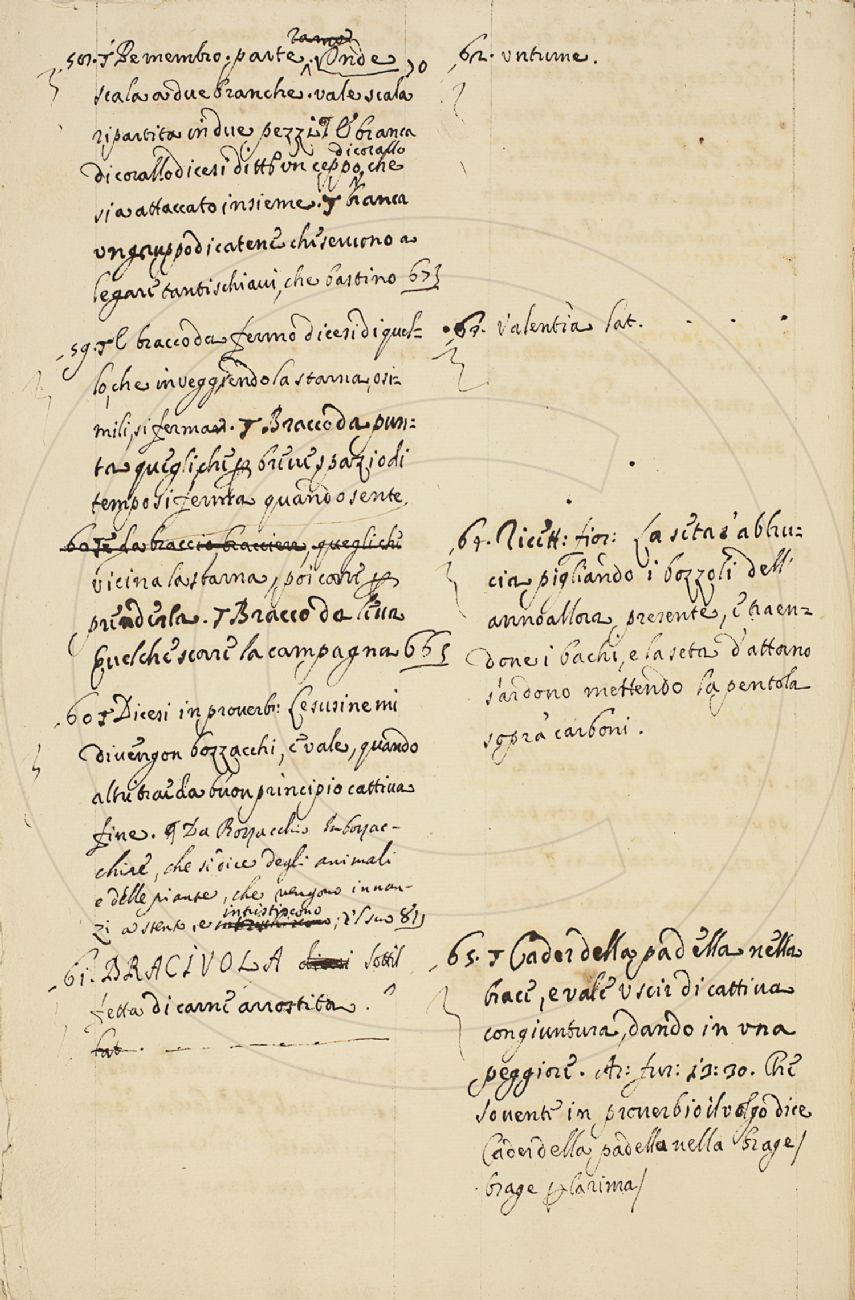 58. ¶ Per membro. parte. ramo Onde
scala a due branche. vale scala
ripartita in due pezzi. ¶ E branca
di corallo dicesi di tutto un ceppo di corallo che
sia attaccato insieme. ¶ branca
un gruppo di catene che servono a
legare tanti schiavi, che bastino 67
59. ¶ E bracco da fermo dicesi di quel=
lo, che in veggiendo la starna, o si=
mili, si ferma. ¶ Bracco da pun=
ta quegli che per breve spazio di
tempo si ferma quando sente
quegli che
vicina la starna, poi corre per
prenderla. ¶ Bracco da leva
Quel che scorre la campagna 66
60 ¶ Dicesi in proverb: Le susine mi
divengon bozzacchi, e vale, quando
altri trae da buon principio cattiva
fine. ¶ Da Bozzacchio Imbozac-
chire, che si dice degli animali
e delle piante, che vengono innan-
zi a stento, e intristiscono; il suo 811
61. BRACIVOLA sottil
fetta di carne arrostita.
lat.
62. untume.
63. Valentia lat.
64. Ricett: fior: La seta s'abbru=
cia pigliando i bozzoli dell'
anno allora presente, e traen=
done i bachi, e la seta d'attorno
s'ardono mettendo la pentola
sopra carboni.
65. ¶ Cader della padella nella
brace, e vale uscir di cattiva
congiuntura, dando in una
peggiore. Ar: fur: 13: 30. Che
sovente in proverbio il volgo dice
Cader della padella nella brage/
brage per la rima/